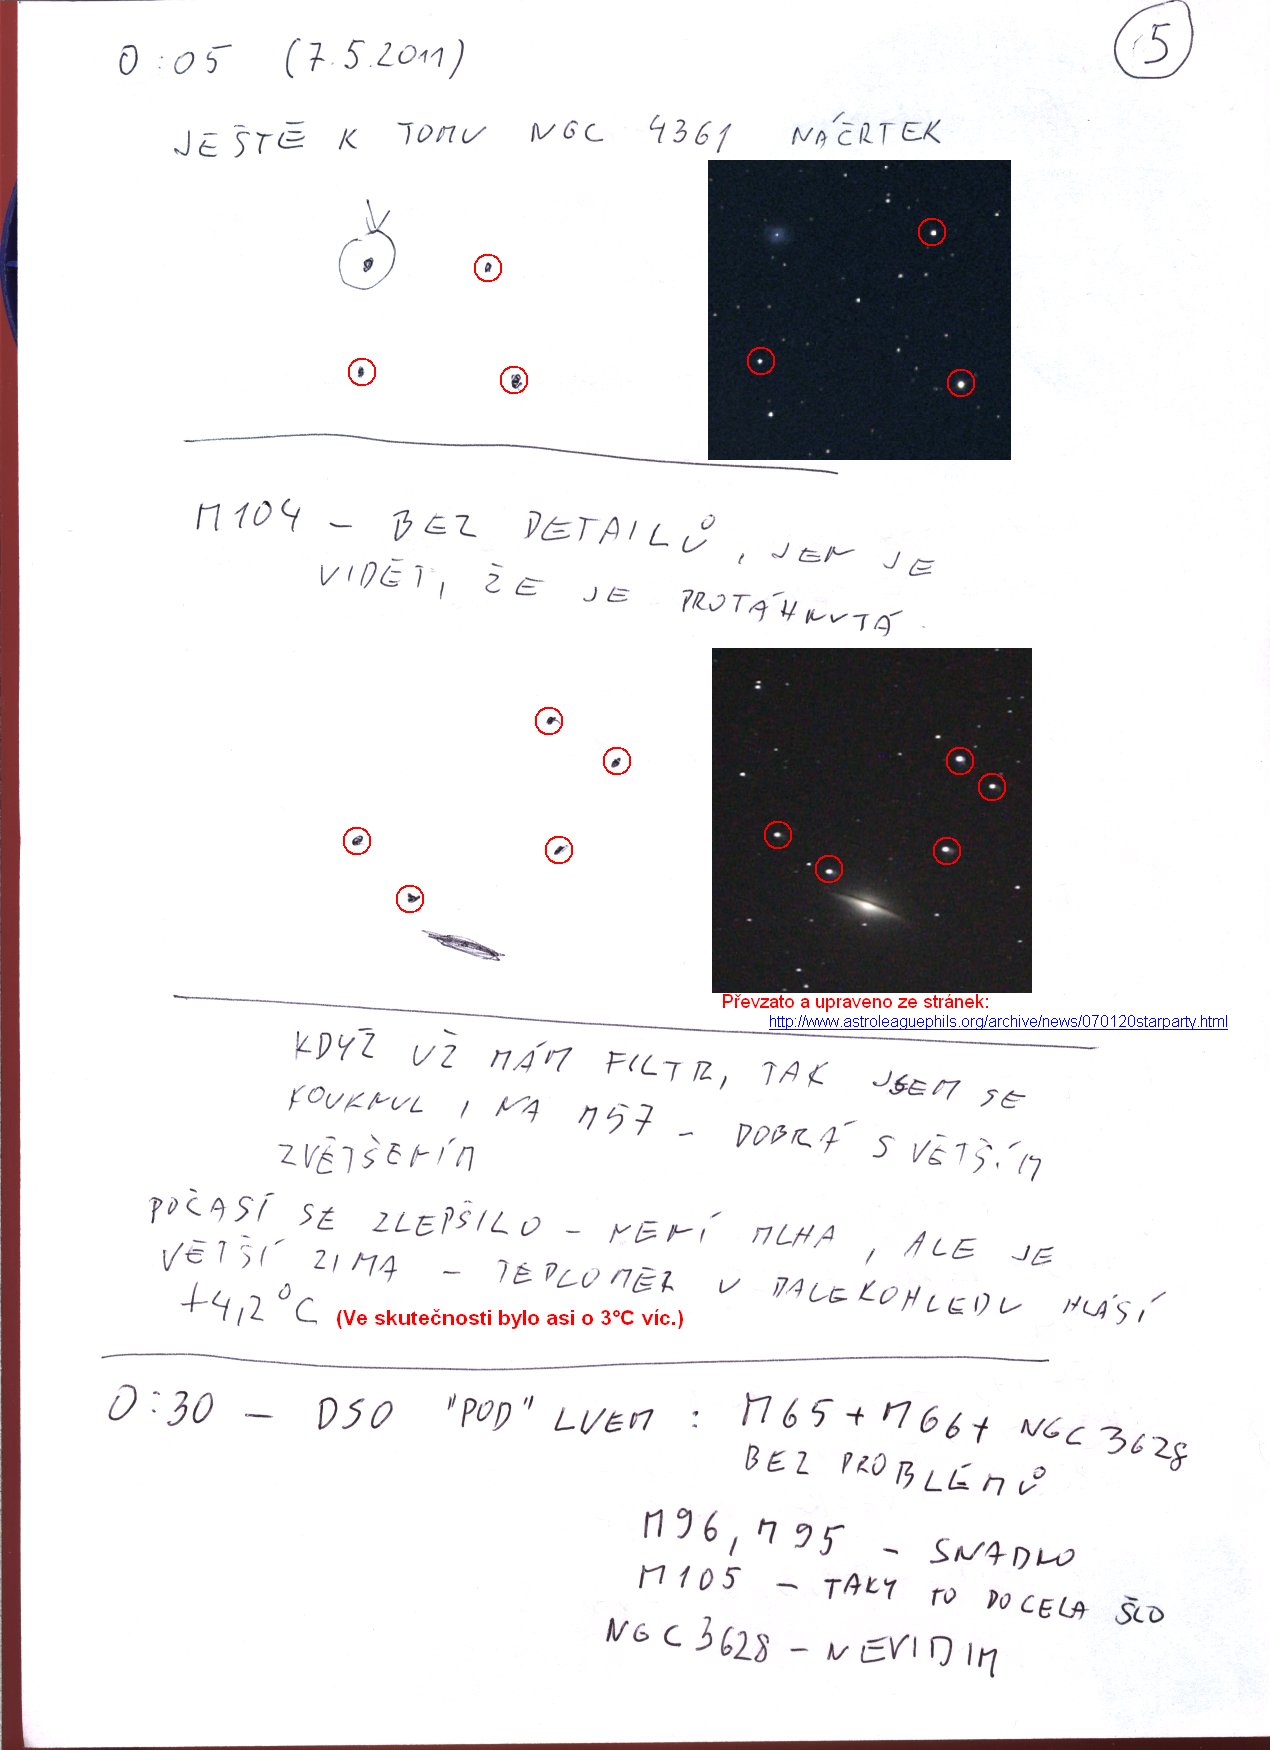 5
0:05 (7.5.2011)
JEŠTĚ K TOMU NGC 4361 NÁČRTEK
M104 – BEZ DETAILŮ, JEN JE
VIDĚT, ŽE JE PROTÁHNUTÁ.
Převzato a upraveno ze stránek:
http://www.astroleaguephils.org/archive/news/070120starparty.html
KDYŽ UŽ MÁM FILTR, TAK JSEM SE
KOUKNUL I NA M57 – DOBRÁ S VĚTŠÍM
ZVĚTŠENÍM
POČASÍ SE ZLEPŠILO – NENÍ MLHA, ALE JE
VĚTŠÍ ZIMA – TEPLOMĚR V DALEKOHLEDU HLÁSÍ
+4,2°C (Ve skutečnosti bylo asi o 3°C víc.)
0:30 – DSO "POD" LVEM : M65 + M66 + NGC 3628
BEZ PROBLÉMŮ
M96, M95 – SNADNO
M105 – TAKY TO DOCELA ŠLO
NGC 3628 – NEVIDIM